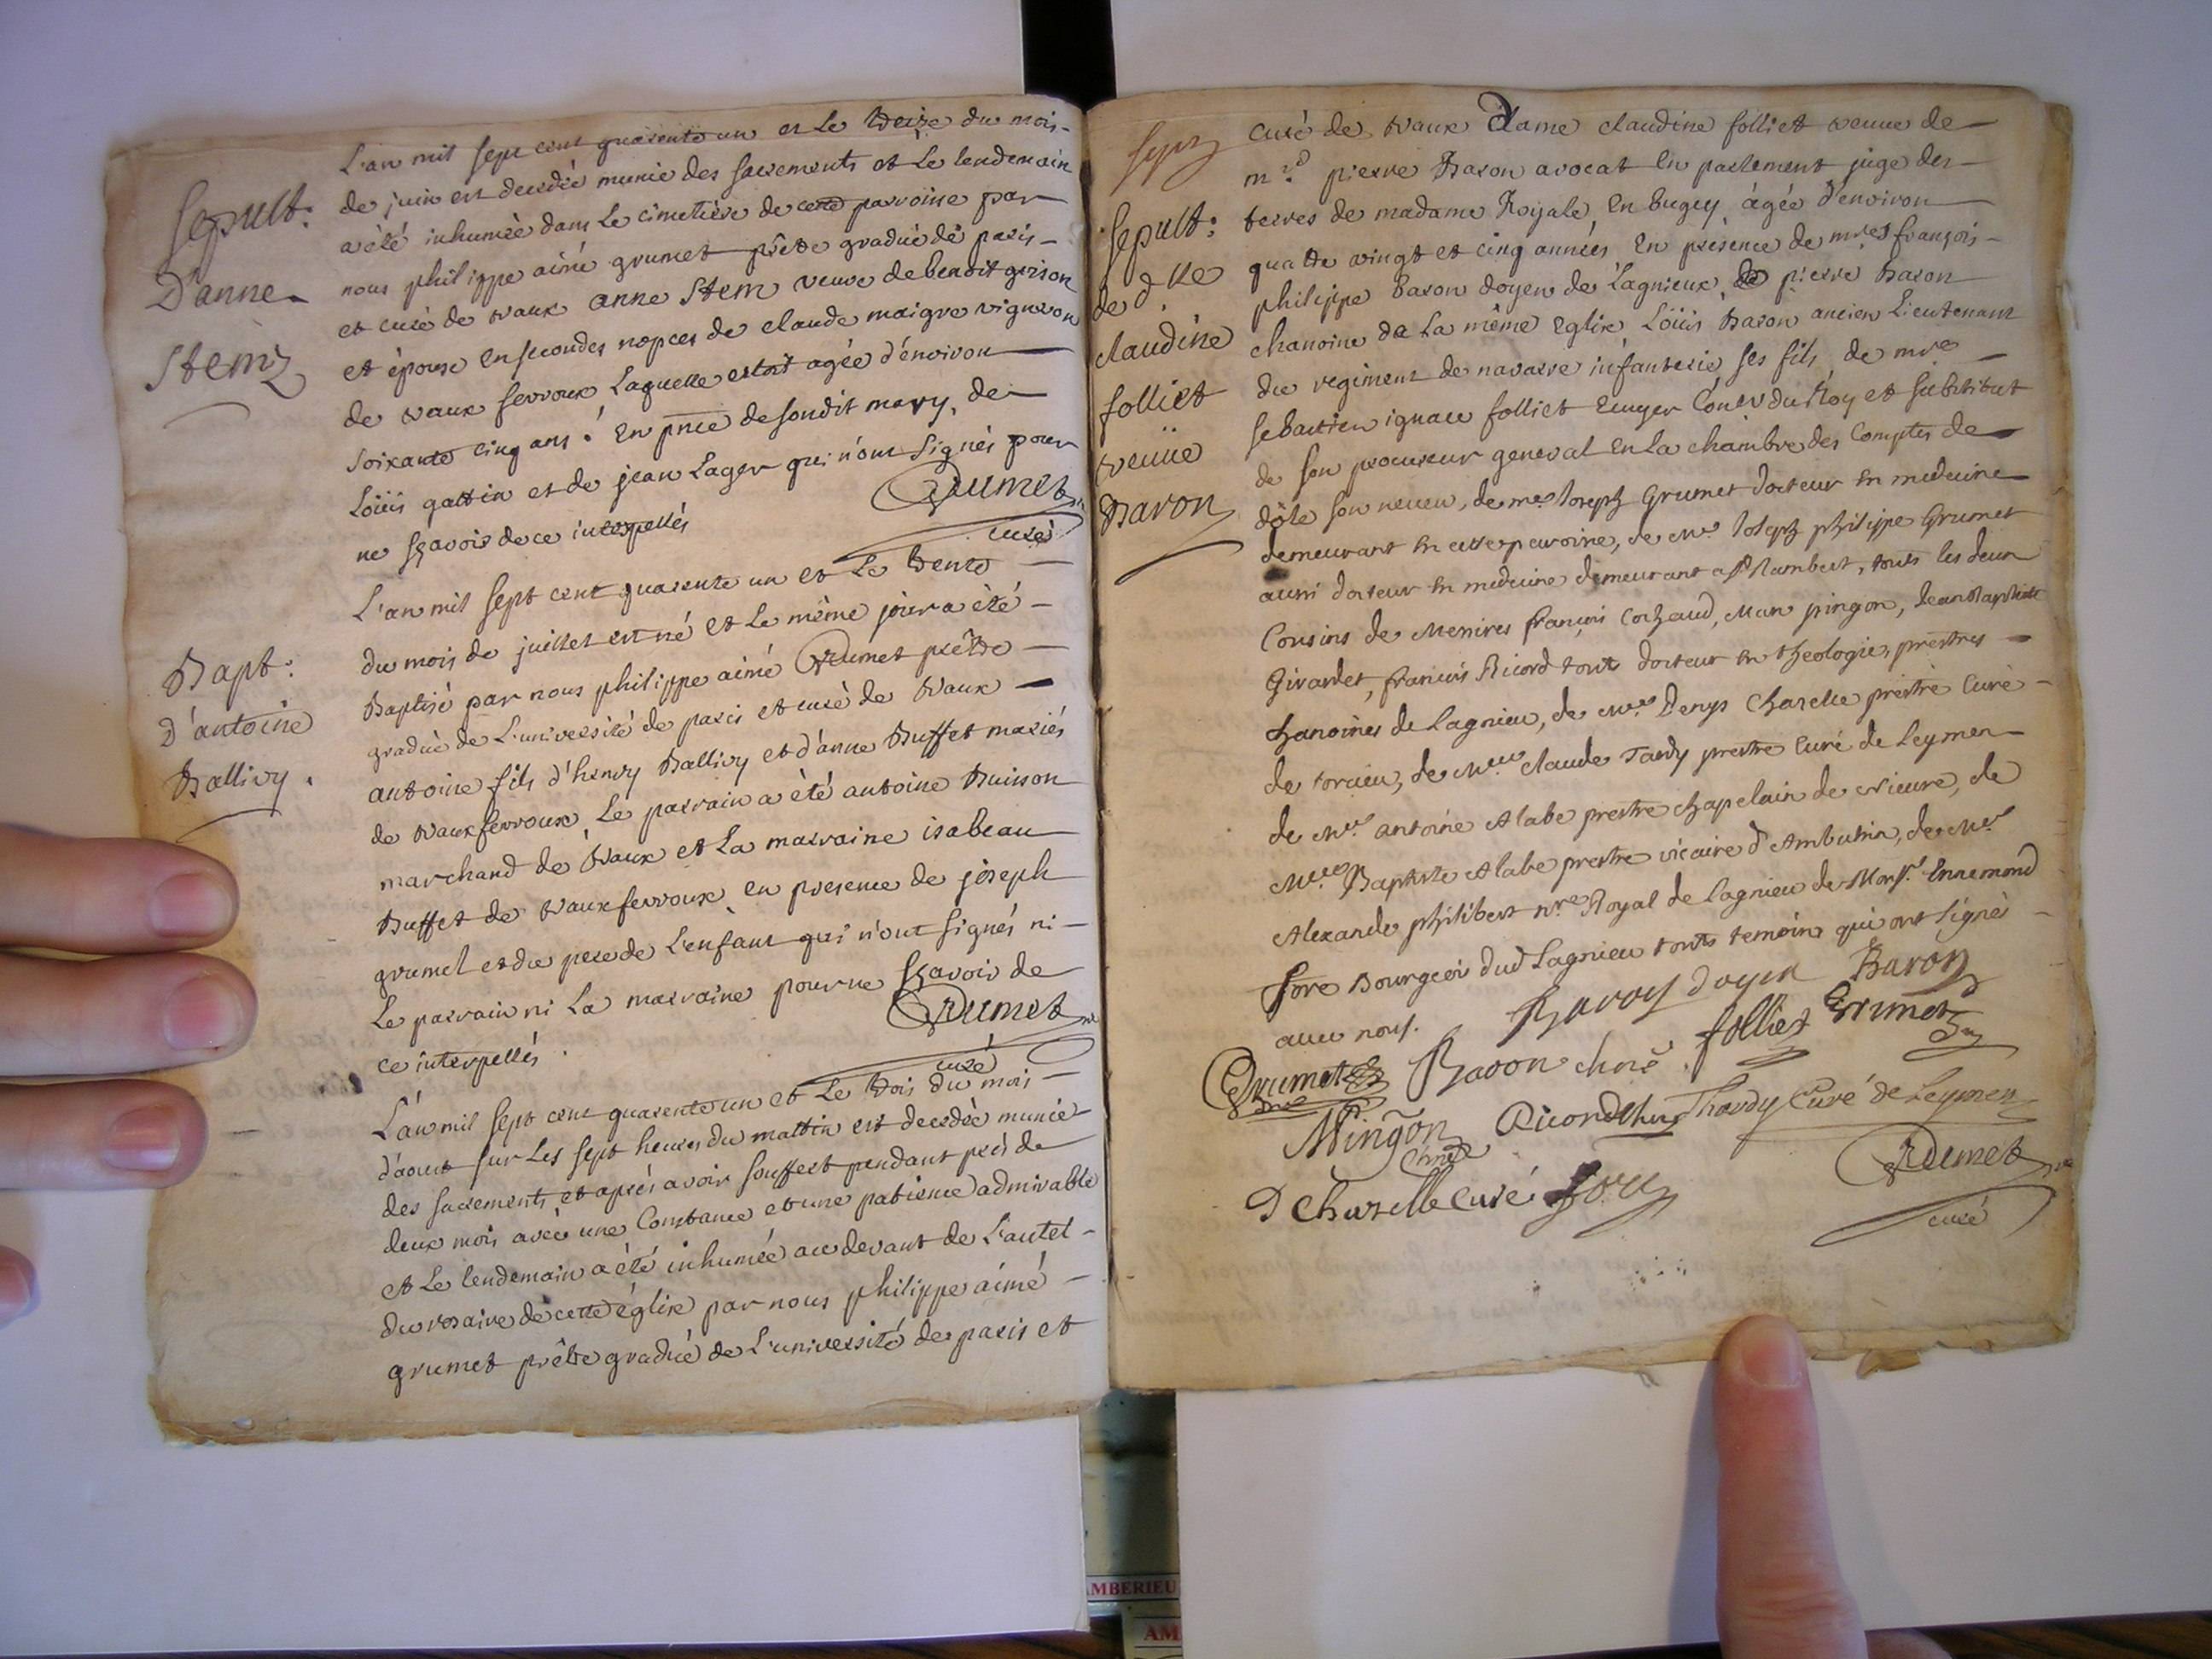 L'an mil sept cent quarente un et Le treize du mois
Sepult: D'anne Stem
de juin est decedée munie des sacrements et Le lendemain
a été inhumée dans Le cimetière de cette parroisse par
nous philippe aimé grumet prêtre gradué de paris
et curé de vaux anne Stem veuve de benoit grison
et épouse en secondes nopces de claude maigre vigneron
de vaux fevroux Laquelle estoit agée d'énviron
soixante cinq ans. En pnce de sondit mary, de
Loüis gattin et de jean Lager qui n'ont signés pour
ne sçavoir de ce interpellés
Grumet
curé
L'an mil sept cent quarente un et Le trente
Bapt: d'antoine Ballivy.
du mois de juillet est né et Le même jour a été
Baptisé par nous philippe aimé Grumet prêtre
gradué de L'université de paris et curé de Vaux
antoine fils d'henry Ballivy et d'anne Buffet mariés
de vaux fevroux, Le parrain a été antoine Buisson
marchand de Vaux et La marraine isabeau
Buffet de vaux fevroux, en presence de joseph
grumel et du pere de L'enfant qui n'ont signés ni
Le parrain ni La marraine pour ne sçavoir de
ce interpellés.
Grumet
curé
L'an mil sept cent quarente un et Le trois du mois
d'aoust sur Les sept heures du mattin est decedée munie
des sacrements et après avoir souffert pendant près de
deux mois avec une Constance et une patience admirable
et Le lendemain a été inhumée au devant de L'autel
du rosaire de cette église par nous philippe aimé
grumet prêtre gradué de L'université de paris et
curé de vaux Dame claudine folliet veuve de
Sepult: de d.lle claudine folliet veuüe Baron
pierre Baron avocat En parlement juge des
terres de madame Royale En bugey, âgée d'environ
quattre vingt et cinq années, En présence de mres françois
philippe baron doyen de Lagnieux, de pierre Baron
chanoine de La même Eglise Loüis Baron ancien Lieutenant
du regiment de navarre infanterie, ses fils, de mre
sebastien ignace folliet Ecuyer Coner du Roy et substitut
de son procureur general En La chambre des Comptes de
dôle son neveu, de me Joseph Grumet docteur en medecine
demeurant en cette paroisse, de Me Joseph philippe Grumet
aussi docteur en medecine demeurant a St Rambert, touts les deux
Cousins de Messires françois Cochaud, Marc pingon, Jean Baptiste
Girardet, françois Ricord tout docteur en theologie, prestres
chanoines de Lagnieu, de Mre Denys Chazelle prestre Curé
de torcieu, de Mre Claude Tardy prestre Curé de Leymen
de Mre Antoine Alabe prestre chapelain de vieure, de
Mre Baptiste Alabe prestre vicaire d'Ambutrin, de Me
Alexandre philibert nre Royal de Lagnieu de Monsr Ennemond
fore Bourgeois dud Lagnieu touts temoins qui ont signés
avec nous.
Baron doyen Baron
Grumet Baron chne. folliet Grumet
Pingon Ricord Chne Thardy Curé de Leymen
Chne
D Chazelle Curé fore
Grumet
curé
AMBERIEU
AM